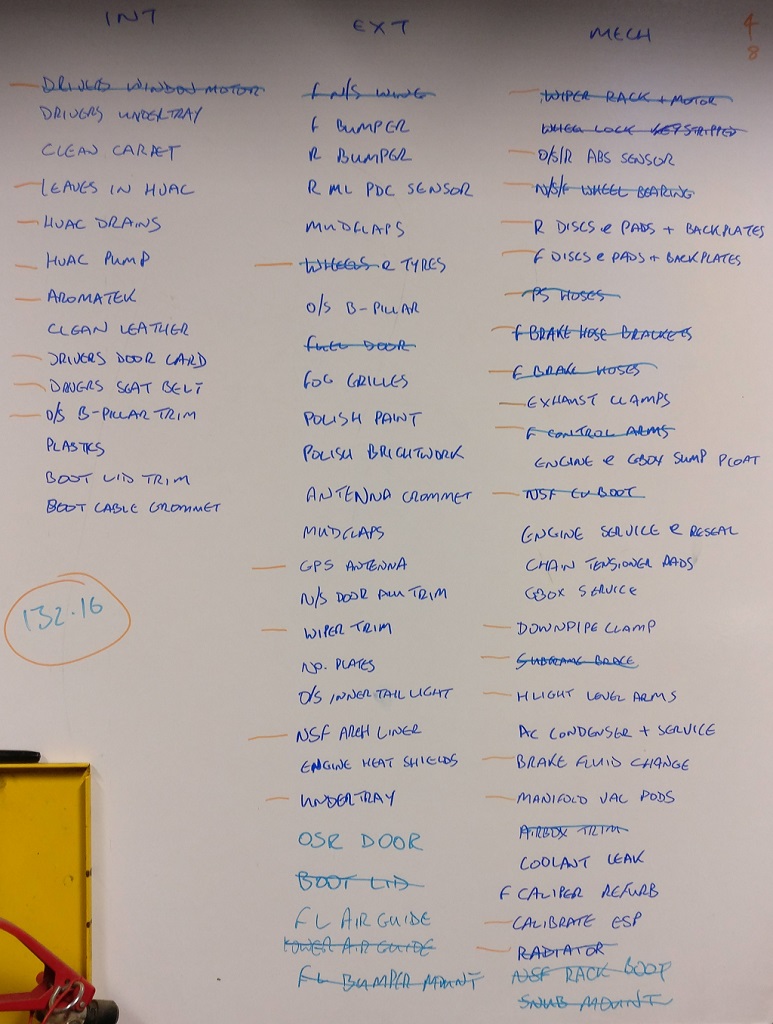 INT
DRIVERS WINDOW MOTOR
DRIVERS UNDERTRAY
CLEAN CARPET
LEAVES IN HVAC
HVAC DRAINS
HVAC PUMP
AROMATEK
CLEAN LEATHER
DRIVERS DOOR CARD
DRIVERS SEAT BELT
O/S B-PILLAR TRIM
PLASTICS
BOOT LID TRIM
BOOT CABLE GROMMET
132.16
EXT
F N/S WING
F BUMPER
R BUMPER
R ML PDC SENSOR
MUDFLAPS
WHEELS & TYRES
O/S B-PILLAR
FUEL DOOR
FOG GRILLES
POLISH PAINT
POLISH BRIGHTWORK
ANTENNA GROMMET
MUDFLAPS
GPS ANTENNA
N/S DOOR TRIM
WIPER TRIM
NO. PLATES
O/S INNER TAIL LIGHT
NSF ARCH LINER
ENGINE HEAT SHIELDS
UNDERTRAY
OSR DOOR
BOOT LID
FL AIR GUIDE
LOWER AIR GUIDE
FL BUMPER MOUNT
MECH
4
8
WIPER RACK + MOTOR
WHEEL LOCK KEY STRIPPED
O/S/R ABS SENSOR
N/S/F WHEEL BEARING
R DISCS & PADS + BACKPLATES
F DISCS & PADS + BACKPLATES
PS HOSES
F BRAKE HOSE BRACKETS
F BRAKE HOSES
EXHAUST CLAMPS
F CONTROL ARMS
ENGINE & GBOX SUMP PLOAT
NSF CV BOOT
ENGINE SERVICE & RESEAL
CHAIN TENSIONER PADS
GBOX SERVICE
DOWNPIPE CLAMP
SUBFRAME BRACE
HLIGHT LEVEL ARMS
AC CONDENSER + SERVICE
BRAKE FLUID CHANGE
MANIFOLD VAC PODS
AIRBOX TRIM
COOLANT LEAK
F CALIPER REFURB
CALIBRATE ESP
RADIATOR
NSF RACK BOOT
SNUB MOUNT